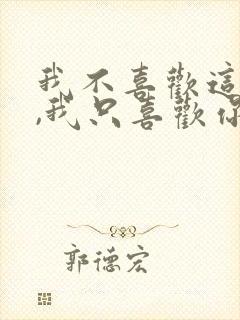 我不喜歡這
,我只喜歡你
郭德宏